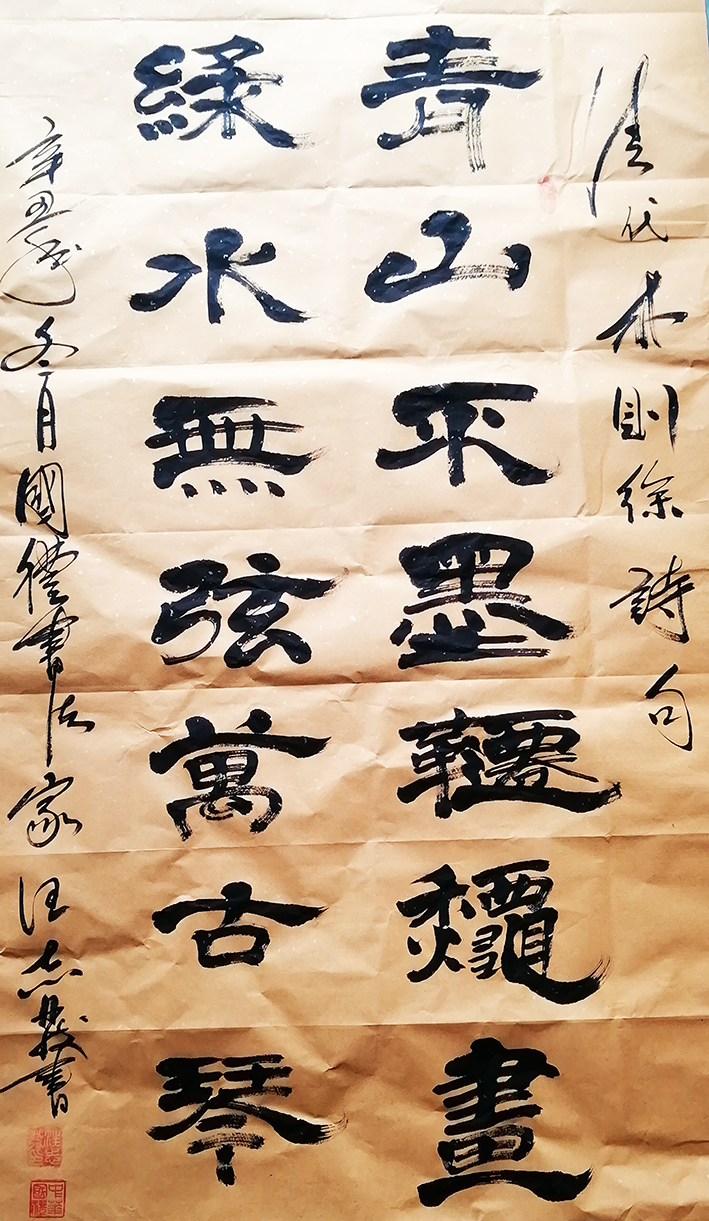 清代林則徐詩句
青山不墨韆龝畫
綠水無弦萬古琴
辛丑歲冬月國禮書法家汪志書